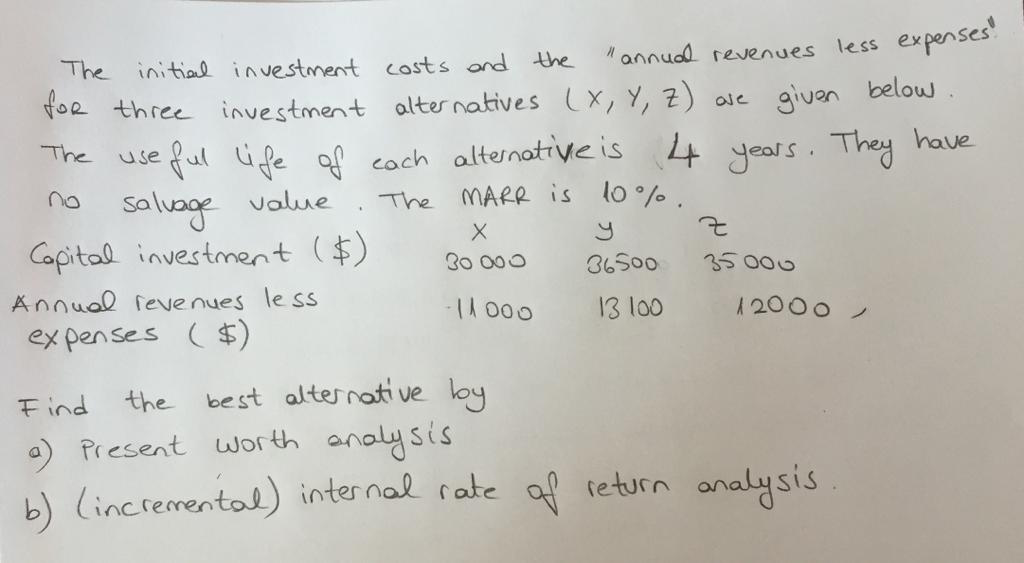 The initial investment costs and the "annual revenues less expenses"
for three investment alternatives (X, Y, Z) are given below.
The useful life of each alternative is 4 years. They have
no salvage value. The MARR is 10%.
X y z
Capital investment ($) 30 000 36500 35 000
Annual revenues less
expenses ($) 11 000 13 100 12000
Find the best alternative by
a) Present worth analysis
b) (incremental) internal rate of return analysis.